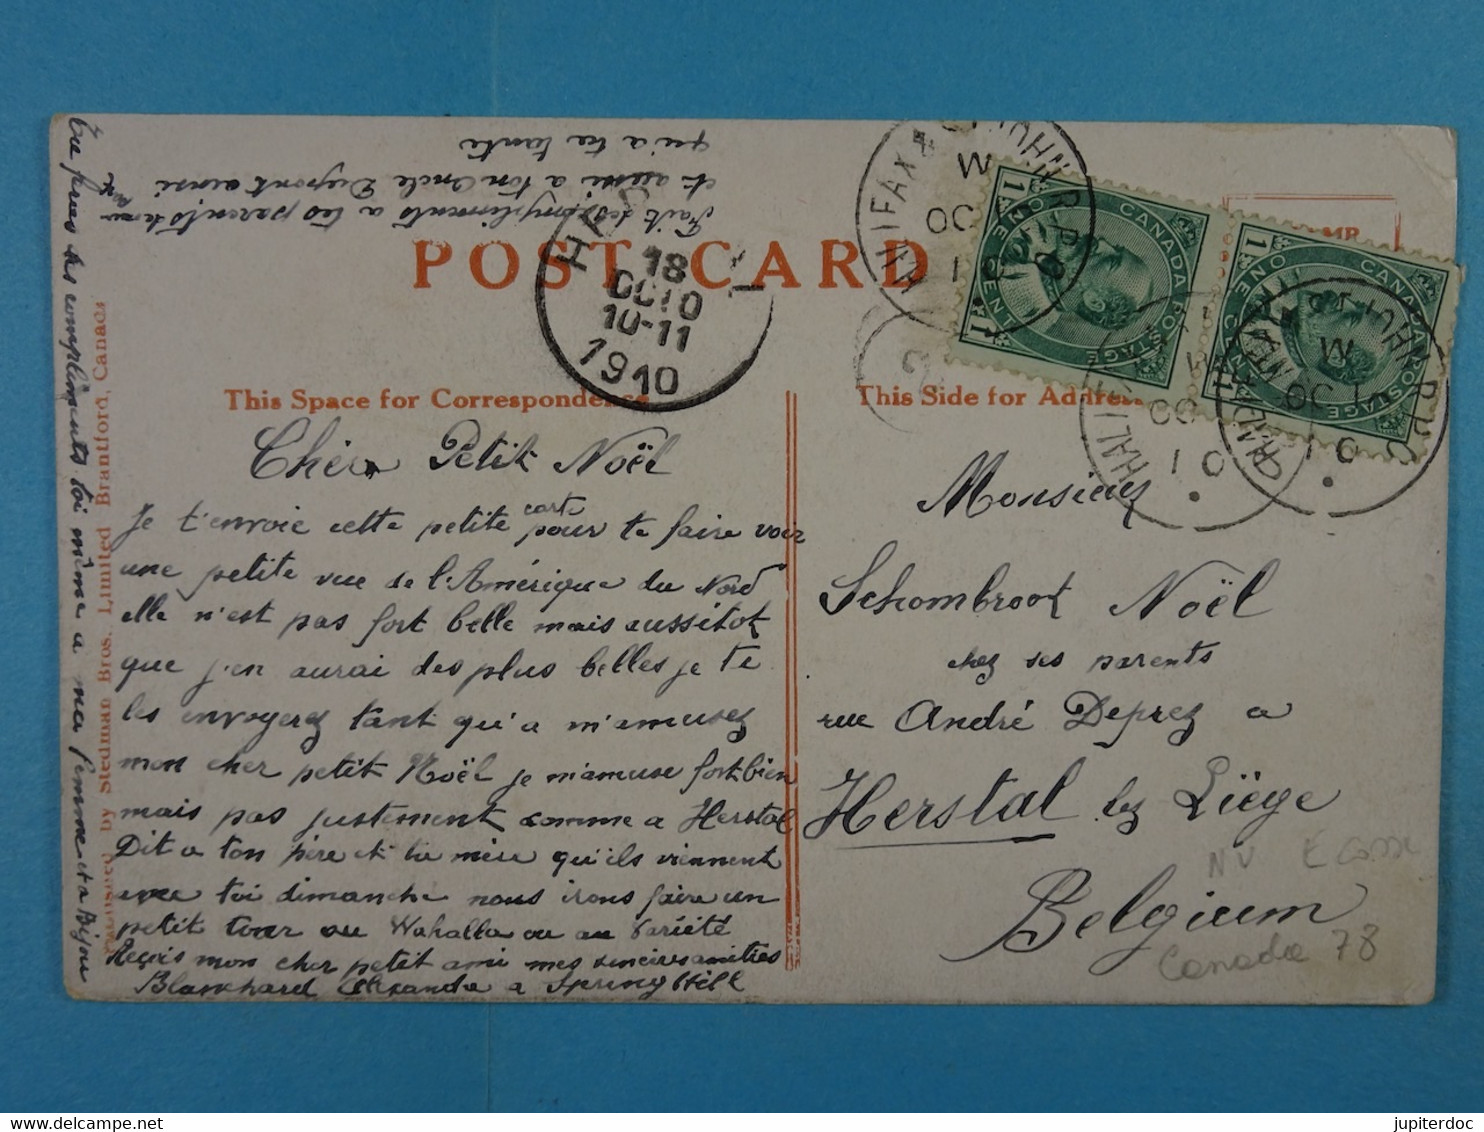 POST CARD
This Space for Correspondence
This Side for Address
Cher Petit Noël
Je t'envoie cette petite carte pour te faire voir
une petite vue de l'Amérique du Nord
elle n'est pas fort belle mais aussitot
que j'en aurai des plus belles je te
les envoyerez tant qu'a m'amusez
mon cher petit Noël je m'amuse fort bien
mais pas justement comme a Herstal
Dit a ton père et ta mère qu'ils viennent
avec toi dimanche nous irons faire un
petit tour au Wahalla ou au Variété
Reçois mon cher petit ami mes sincires amities
Blanchard Alexandre a Spring Hill
Fait des complimento a tes parento
et aussi a ton Oncle Dupont ainsi
qu'a ta tante
Tu feras des compliments toi même a ma femme et a Bijou
by Stedman Bros. Limited Brantford, Canada
Monsieur
Schombroot Noël
chez ses parents
rue André Deprez a
Herstal lez Liège
Belgium
NV
Canada 78
18
OCTO
10-11
1910
HALIFAX & ST JOHN R.P.O.
M
OC
10
CANADA POSTAGE
ONE CENT
1
1
CANADA POSTAGE
ONE CENT
1
1
HALIFAX
M
OC
10
ST JOHN R.P.O.
M
OC
10